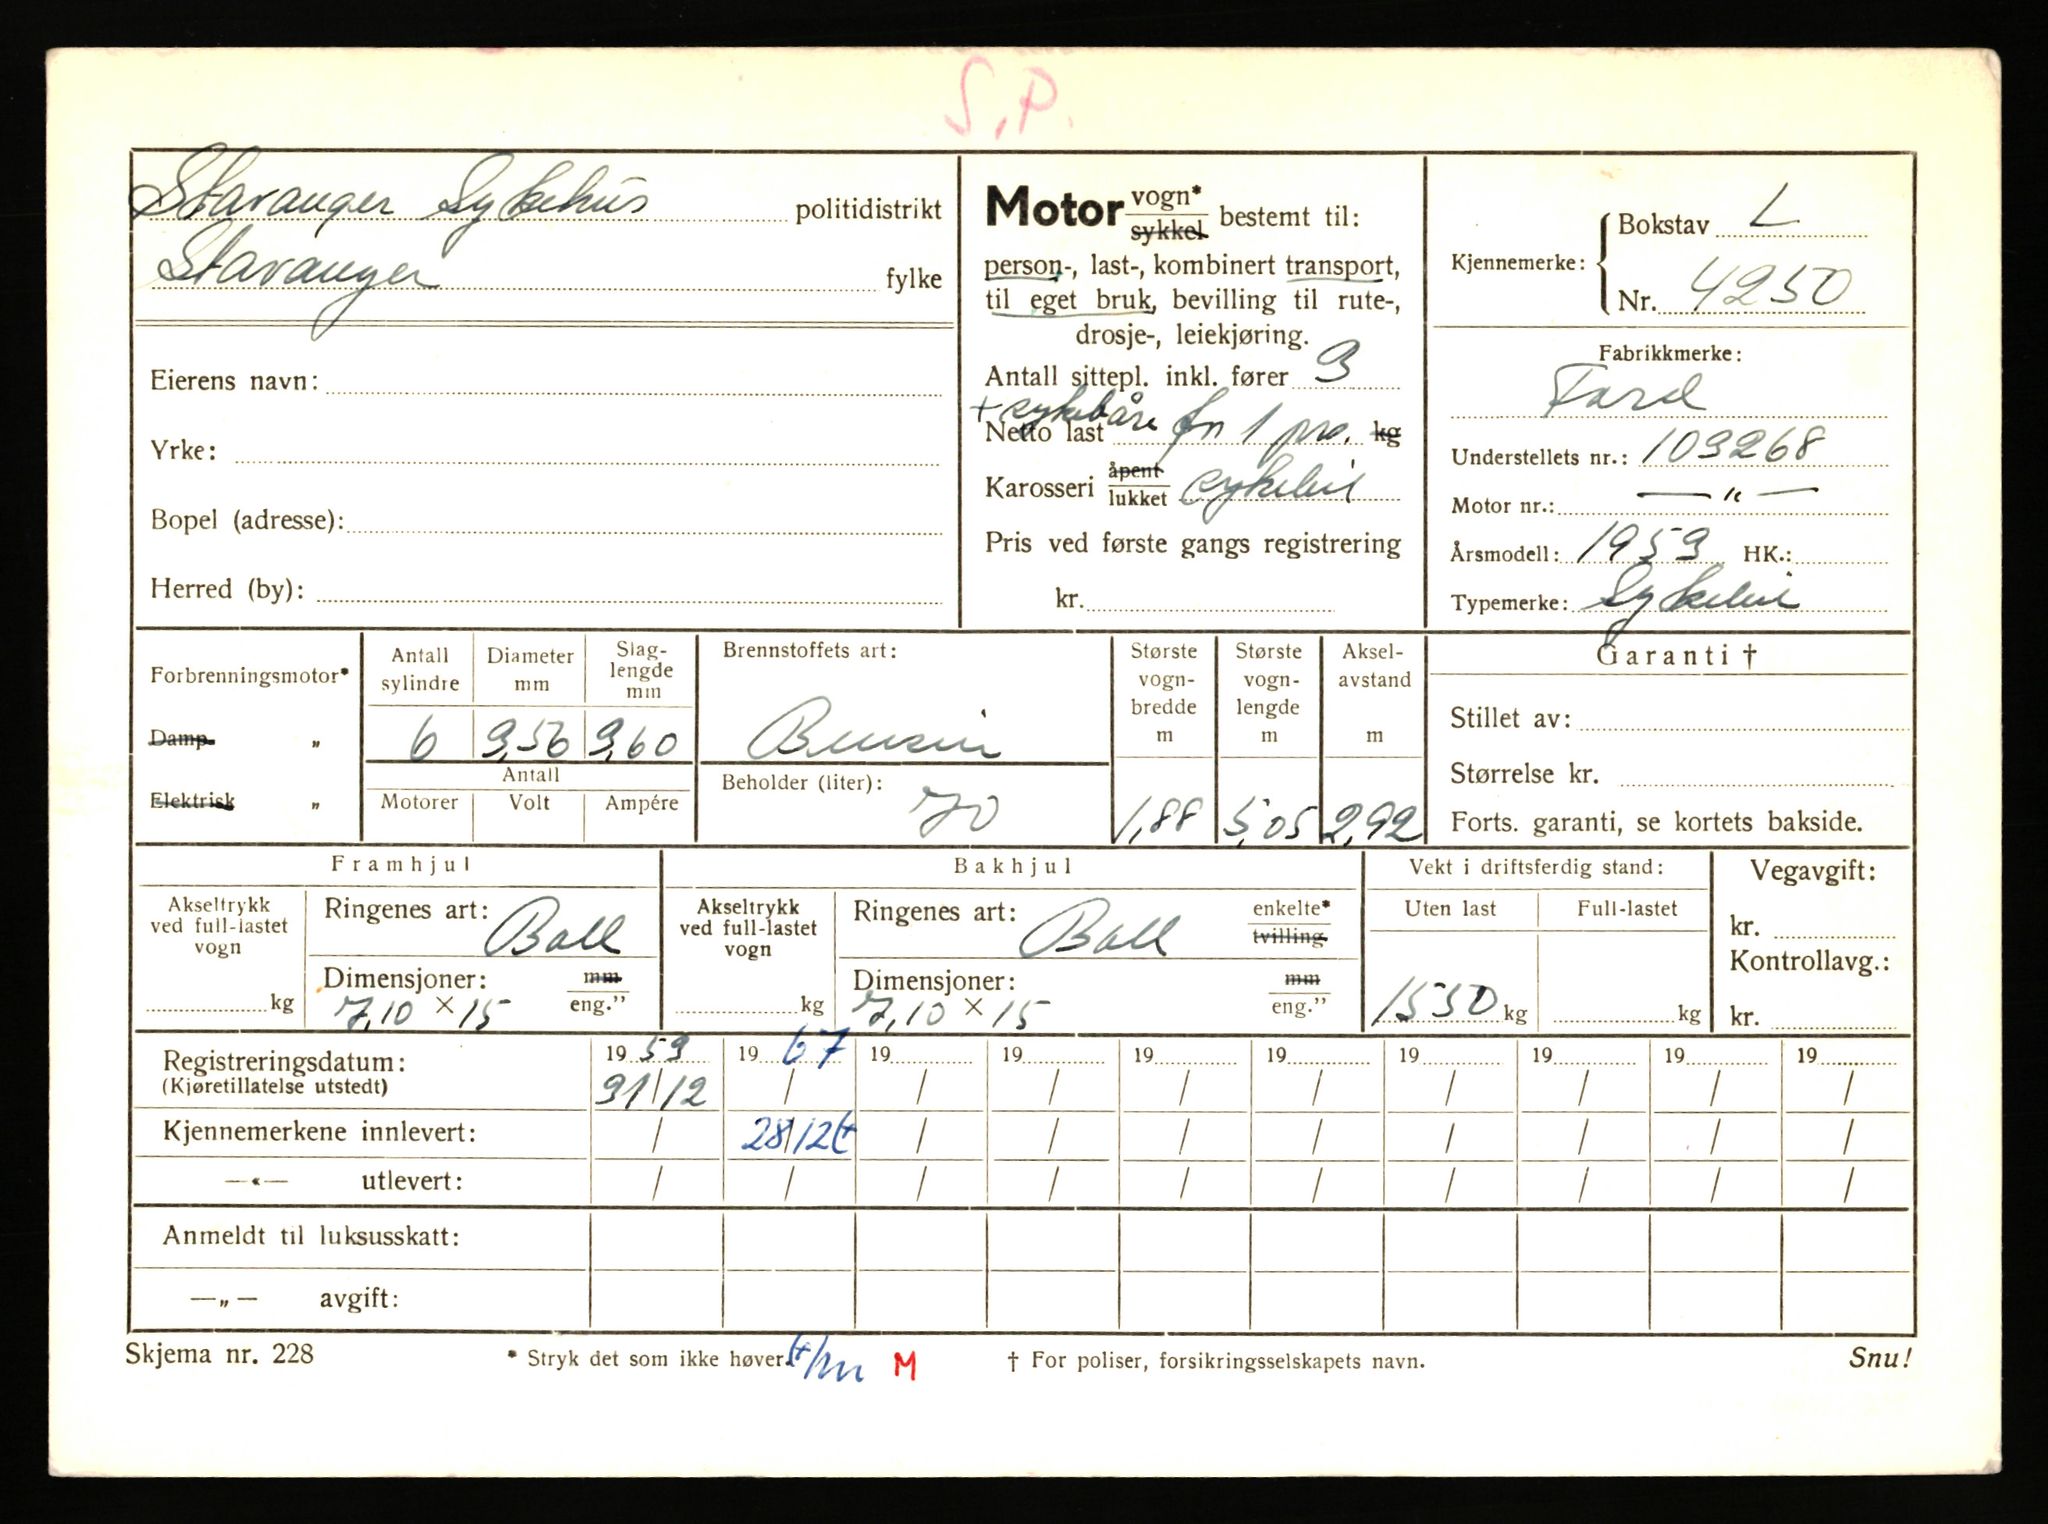 S.P.
Stavanger Sykehus politidistrikt
Stavanger fylke
Eierens navn:
Yrke:
Bopel (adresse):
Herred (by):
Motor vogn* sykkel bestemt til:
person-, last-, kombinert transport,
til eget bruk, bevilling til rute-,
drosje-, leiekjøring.
Antall sittepl. inkl. fører 3
+ sykebåre for 1 prs.
Netto last kg
Karosseri åpent lukket sykebil
Pris ved første gangs registrering
kr.
Kjennemerke: Bokstav L
Nr. 4250
Fabrikkmerke:
Ford
Understellets nr.: 103268
Motor nr.: — " —
Årsmodell: 1959 HK.:
Typemerke: Sykebil
Forbrenningsmotor*
Damp. "
Elektrisk "
Antall sylindre Diameter mm Slaglengde mm
6 3,56 3,60
Antall
Motorer Volt Ampére
Brennstoffets art:
Bensin
Beholder (liter):
70
Største vogn-bredde m
1,88
Største vogn-lengde m
5,05
Aksel-avstand m
2,92
Garanti †
Stillet av:
Størrelse kr.
Forts. garanti, se kortets bakside.
Framhjul
Akseltrykk ved full-lastet vogn
kg
Ringenes art: Ball
Dimensjoner: mm eng."
7,10 × 15
Bakhjul
Akseltrykk ved full-lastet vogn
kg
Ringenes art: Ball enkelte* tvilling
Dimensjoner: mm eng."
7,10 × 15
Vekt i driftsferdig stand:
Uten last Full-lastet
1550 kg kg
Vegavgift:
kr.
Kontrollavg.:
kr.
Registreringsdatum: 1959 1967 19 19 19 19 19 19 19 19
(Kjøretillatelse utstedt) 31/12 / / / / / / / / /
Kjennemerkene innlevert: / 28/12 / / / / / / / /
—«— utlevert: / / / / / / / / / /
Anmeldt til luksusskatt:
—„— avgift:
Skjema nr. 228
* Stryk det som ikke høver.
M
† For poliser, forsikringsselskapets navn.
Snu!